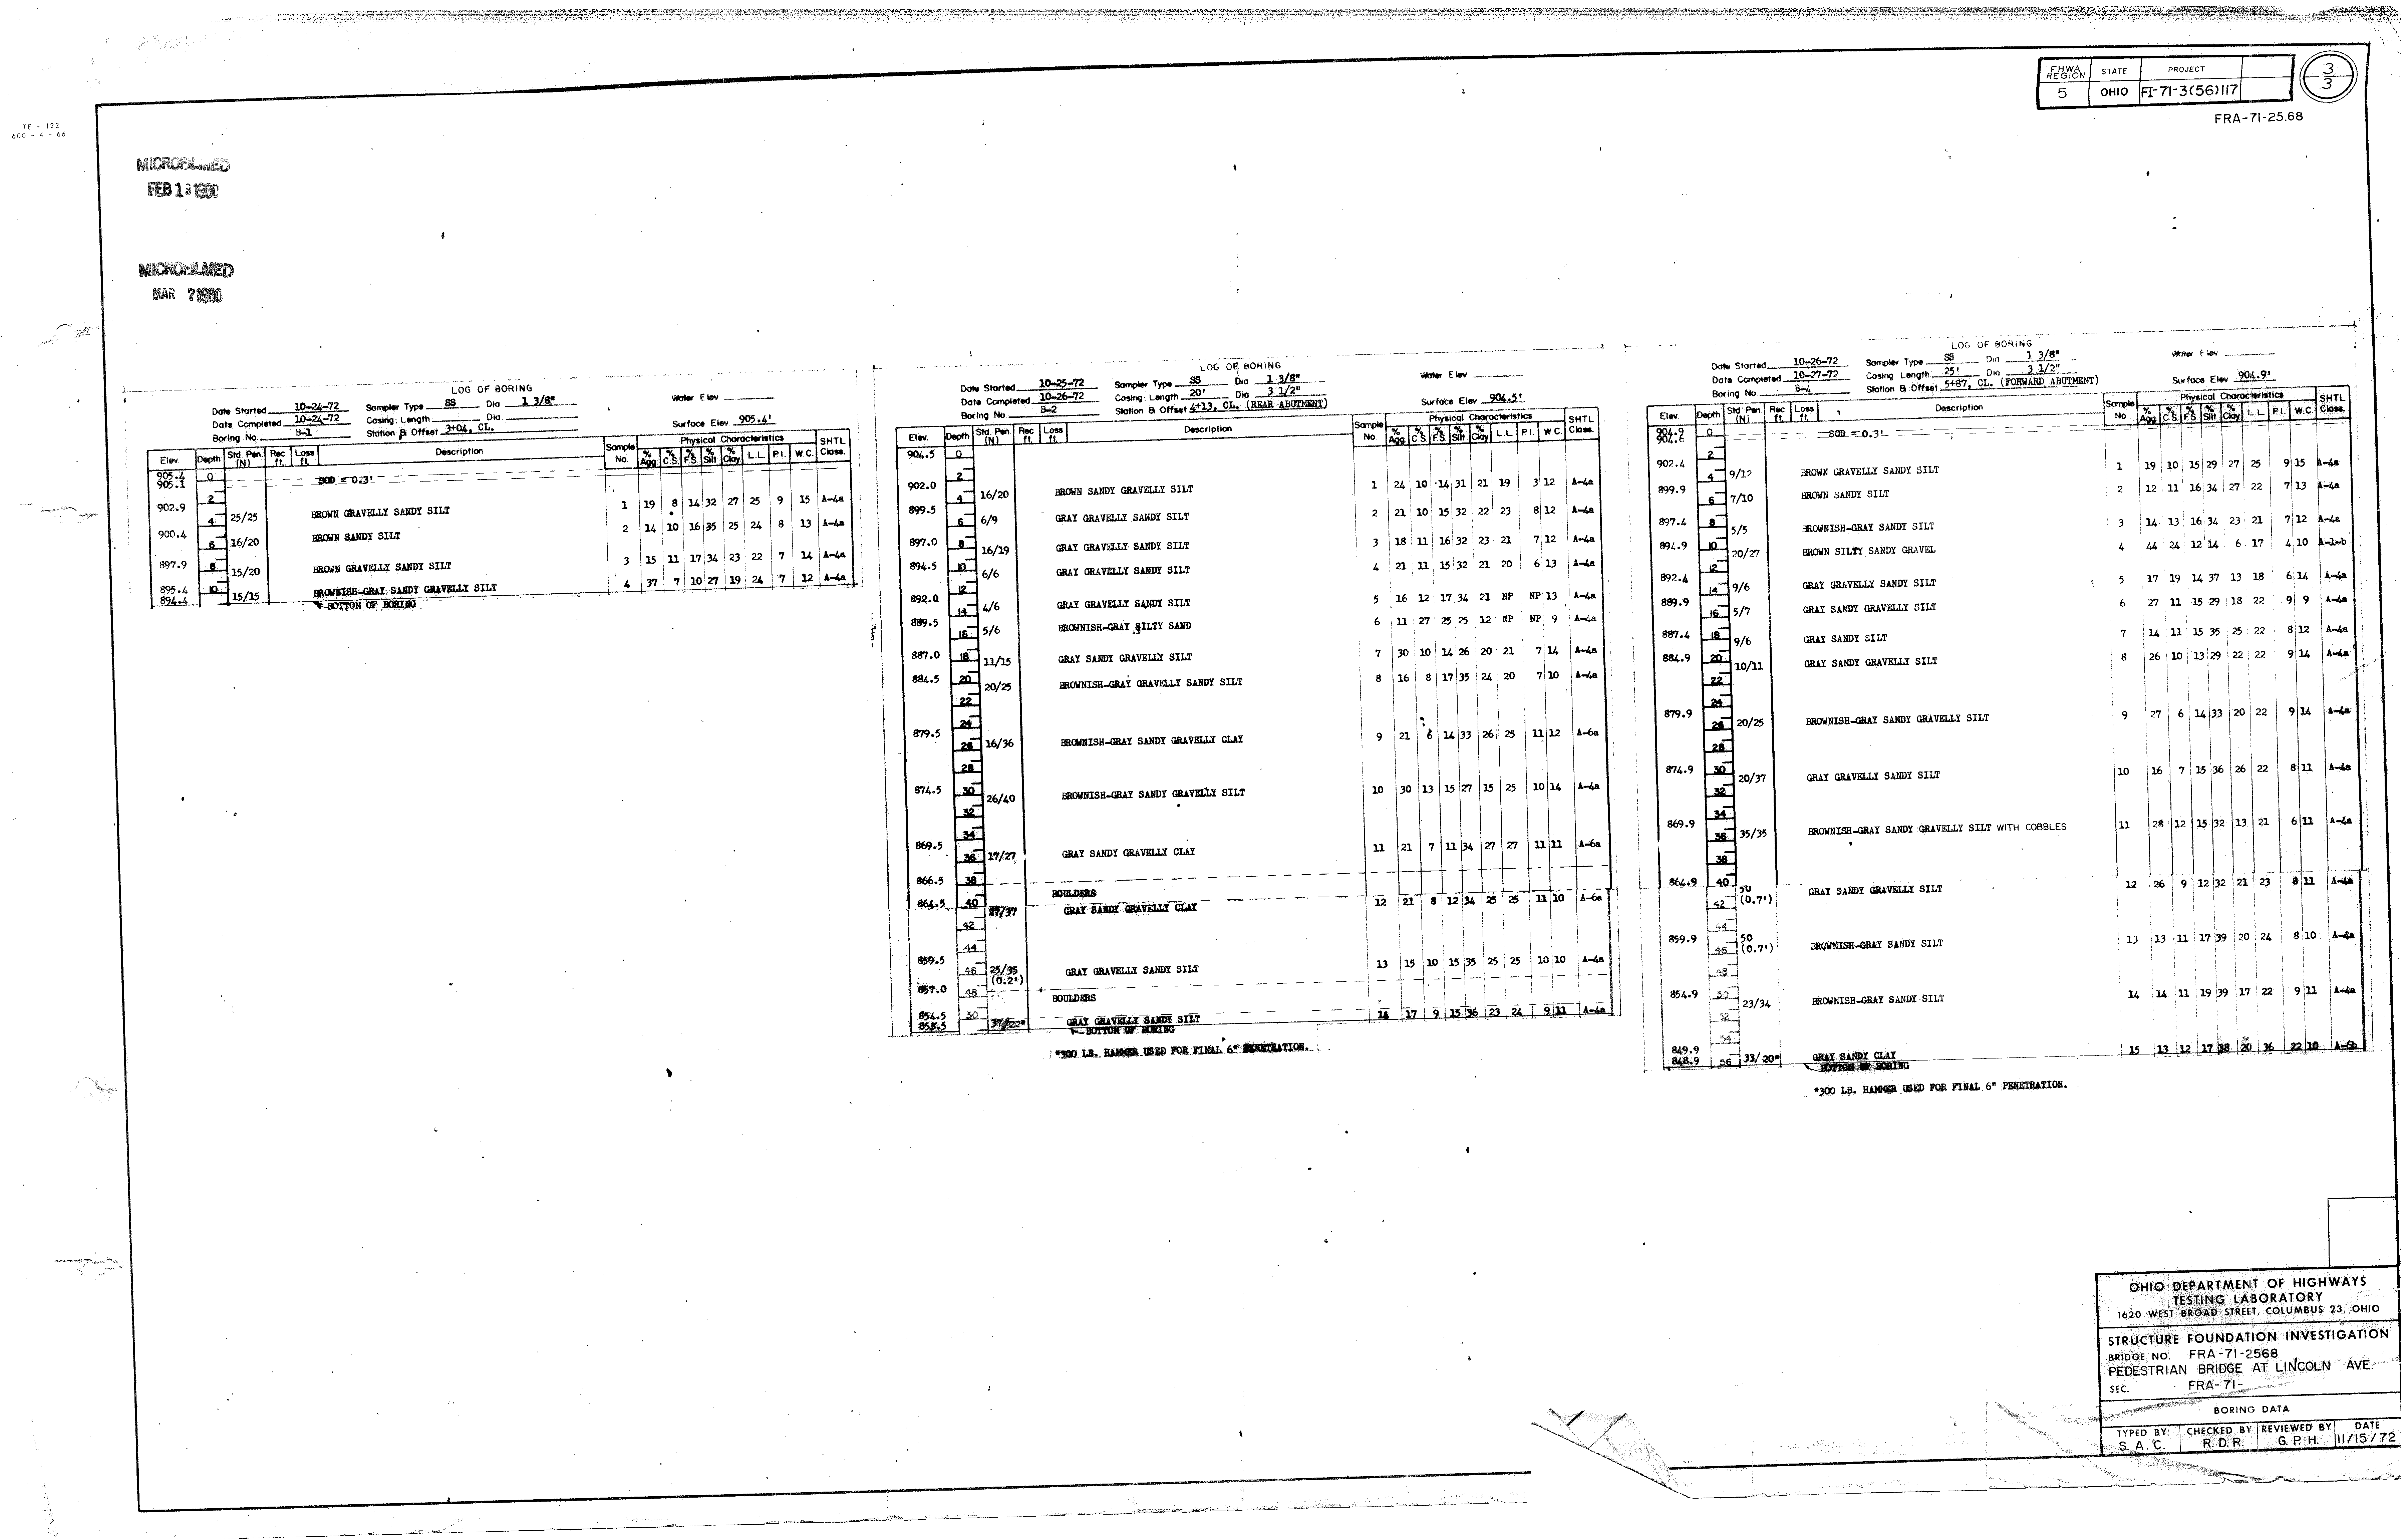 TE - 122
600 - 4 - 66
FHWA REGION STATE PROJECT
5 OHIO FI-71-3(56)117
3/3
FRA-71-25.68
MICROFILMED
FEB 1 1980
MICROFILMED
MAR 7 1980
LOG OF BORING
Date Started 10-24-72 Sampler Type SS Dia 1 3/8" Water Elev
Date Completed 10-24-72 Casing: Length Dia
Boring No. B-1 Station & Offset 3+04, CL. Surface Elev 905.4'
Elev. Depth Std. Pen. (N) Rec. ft. Loss ft. Description Sample No. Physical Characteristics SHTL Class.
% Agg % C.S. % F.S. % Silt % Clay L.L. P.I. W.C.
905.4 0
905.1 SOD = 0.3'
2
902.9 4 25/25 BROWN GRAVELLY SANDY SILT 1 19 8 14 32 27 25 9 15 A-4a
900.4 6 16/20 BROWN SANDY SILT 2 14 10 16 35 25 24 8 13 A-4a
897.9 8 15/20 BROWN GRAVELLY SANDY SILT 3 15 11 17 34 23 22 7 14 A-4a
895.4 10 15/15 BROWNISH-GRAY SANDY GRAVELLY SILT 4 37 7 10 27 19 24 7 12 A-4a
894.4 BOTTOM OF BORING
LOG OF BORING
Date Started 10-25-72 Sampler Type SS Dia 1 3/8" Water Elev
Date Completed 10-26-72 Casing: Length 20' Dia 3 1/2"
Boring No. B-2 Station & Offset 4+13, CL. (REAR ABUTMENT) Surface Elev 904.5'
Elev. Depth Std. Pen. (N) Rec. ft. Loss ft. Description Sample No. Physical Characteristics SHTL Class.
% Agg % C.S. % F.S. % Silt % Clay L.L. P.I. W.C.
904.5 0
2
902.0 4 16/20 BROWN SANDY GRAVELLY SILT 1 24 10 14 31 21 19 3 12 A-4a
899.5 6 6/9 GRAY GRAVELLY SANDY SILT 2 21 10 15 32 22 23 8 12 A-4a
897.0 8 16/19 GRAY GRAVELLY SANDY SILT 3 18 11 16 32 23 21 7 12 A-4a
894.5 10 6/6 GRAY GRAVELLY SANDY SILT 4 21 11 15 32 21 20 6 13 A-4a
12
892.0 14 4/6 GRAY GRAVELLY SANDY SILT 5 16 12 17 34 21 NP NP 13 A-4a
889.5 16 5/6 BROWNISH-GRAY SILTY SAND 6 11 27 25 25 12 NP NP 9 A-4a
887.0 18 11/15 GRAY SANDY GRAVELLY SILT 7 30 10 14 26 20 21 7 14 A-4a
884.5 20 20/25 BROWNISH-GRAY GRAVELLY SANDY SILT 8 16 8 17 35 24 20 7 10 A-4a
22
24
879.5 26 16/36 BROWNISH-GRAY SANDY GRAVELLY CLAY 9 21 6 14 33 26 25 11 12 A-6a
28
874.5 30 26/40 BROWNISH-GRAY SANDY GRAVELLY SILT 10 30 13 15 27 15 25 10 14 A-4a
32
34
869.5 36 17/27 GRAY SANDY GRAVELLY CLAY 11 21 7 11 34 27 27 11 11 A-6a
866.5 38
BOULDERS
864.5 40 27/37 GRAY SANDY GRAVELLY CLAY 12 21 8 12 34 25 25 11 10 A-6a
42
44
859.5 46 25/35 (0.2') GRAY GRAVELLY SANDY SILT 13 15 10 15 35 25 25 10 10 A-4a
857.0 48
BOULDERS
854.5 50 37/22* GRAY GRAVELLY SANDY SILT 14 17 9 15 36 23 24 9 11 A-4a
853.5 BOTTOM OF BORING
*300 LB. HAMMER USED FOR FINAL 6" PENETRATION.
LOG OF BORING
Date Started 10-26-72 Sampler Type SS Dia 1 3/8" Water Elev
Date Completed 10-27-72 Casing Length 25' Dia 3 1/2"
Boring No B-4 Station & Offset 5+87, CL. (FORWARD ABUTMENT) Surface Elev 904.9'
Elev. Depth Std Pen (N) Rec ft. Loss ft. Description Sample No Physical Characteristics SHTL Class.
% Agg % C.S. % F.S. % Silt % Clay L.L. P.I. W.C.
904.9 0
904.6 SOD = 0.3'
2
902.4 4 9/12 BROWN GRAVELLY SANDY SILT 1 19 10 15 29 27 25 9 15 A-4a
899.9 6 7/10 BROWN SANDY SILT 2 12 11 16 34 27 22 7 13 A-4a
897.4 8 5/5 BROWNISH-GRAY SANDY SILT 3 14 13 16 34 23 21 7 12 A-4a
894.9 10 20/27 BROWN SILTY SANDY GRAVEL 4 44 24 12 14 6 17 4 10 A-1-b
12
892.4 14 9/6 GRAY GRAVELLY SANDY SILT 5 17 19 14 37 13 18 6 14 A-4a
889.9 16 5/7 GRAY SANDY GRAVELLY SILT 6 27 11 15 29 18 22 9 9 A-4a
887.4 18 9/6 GRAY SANDY SILT 7 14 11 15 35 25 22 8 12 A-4a
884.9 20 10/11 GRAY SANDY GRAVELLY SILT 8 26 10 13 29 22 22 9 14 A-4a
22
24
879.9 26 20/25 BROWNISH-GRAY SANDY GRAVELLY SILT 9 27 6 14 33 20 22 9 14 A-4a
28
874.9 30 20/37 GRAY GRAVELLY SANDY SILT 10 16 7 15 36 26 22 8 11 A-4a
32
34
869.9 36 35/35 BROWNISH-GRAY SANDY GRAVELLY SILT WITH COBBLES 11 28 12 15 32 13 21 6 11 A-4a
38
864.9 40 50 GRAY SANDY GRAVELLY SILT 12 26 9 12 32 21 23 8 11 A-4a
42 (0.7')
44
859.9 46 50 (0.7') BROWNISH-GRAY SANDY SILT 13 13 11 17 39 20 24 8 10 A-4a
48
854.9 50 23/34 BROWNISH-GRAY SANDY SILT 14 14 11 19 39 17 22 9 11 A-4a
52
54
849.9 56 33/20* GRAY SANDY CLAY 15 13 12 17 38 20 36 22 10 A-6b
848.9 BOTTOM OF BORING
*300 LB. HAMMER USED FOR FINAL 6" PENETRATION.
OHIO DEPARTMENT OF HIGHWAYS
TESTING LABORATORY
1620 WEST BROAD STREET, COLUMBUS 23, OHIO
STRUCTURE FOUNDATION INVESTIGATION
BRIDGE NO. FRA-71-2568
PEDESTRIAN BRIDGE AT LINCOLN AVE.
SEC. FRA-71-
BORING DATA
TYPED BY CHECKED BY REVIEWED BY DATE
S. A. C. R. D. R. G. P. H. 11/15/72